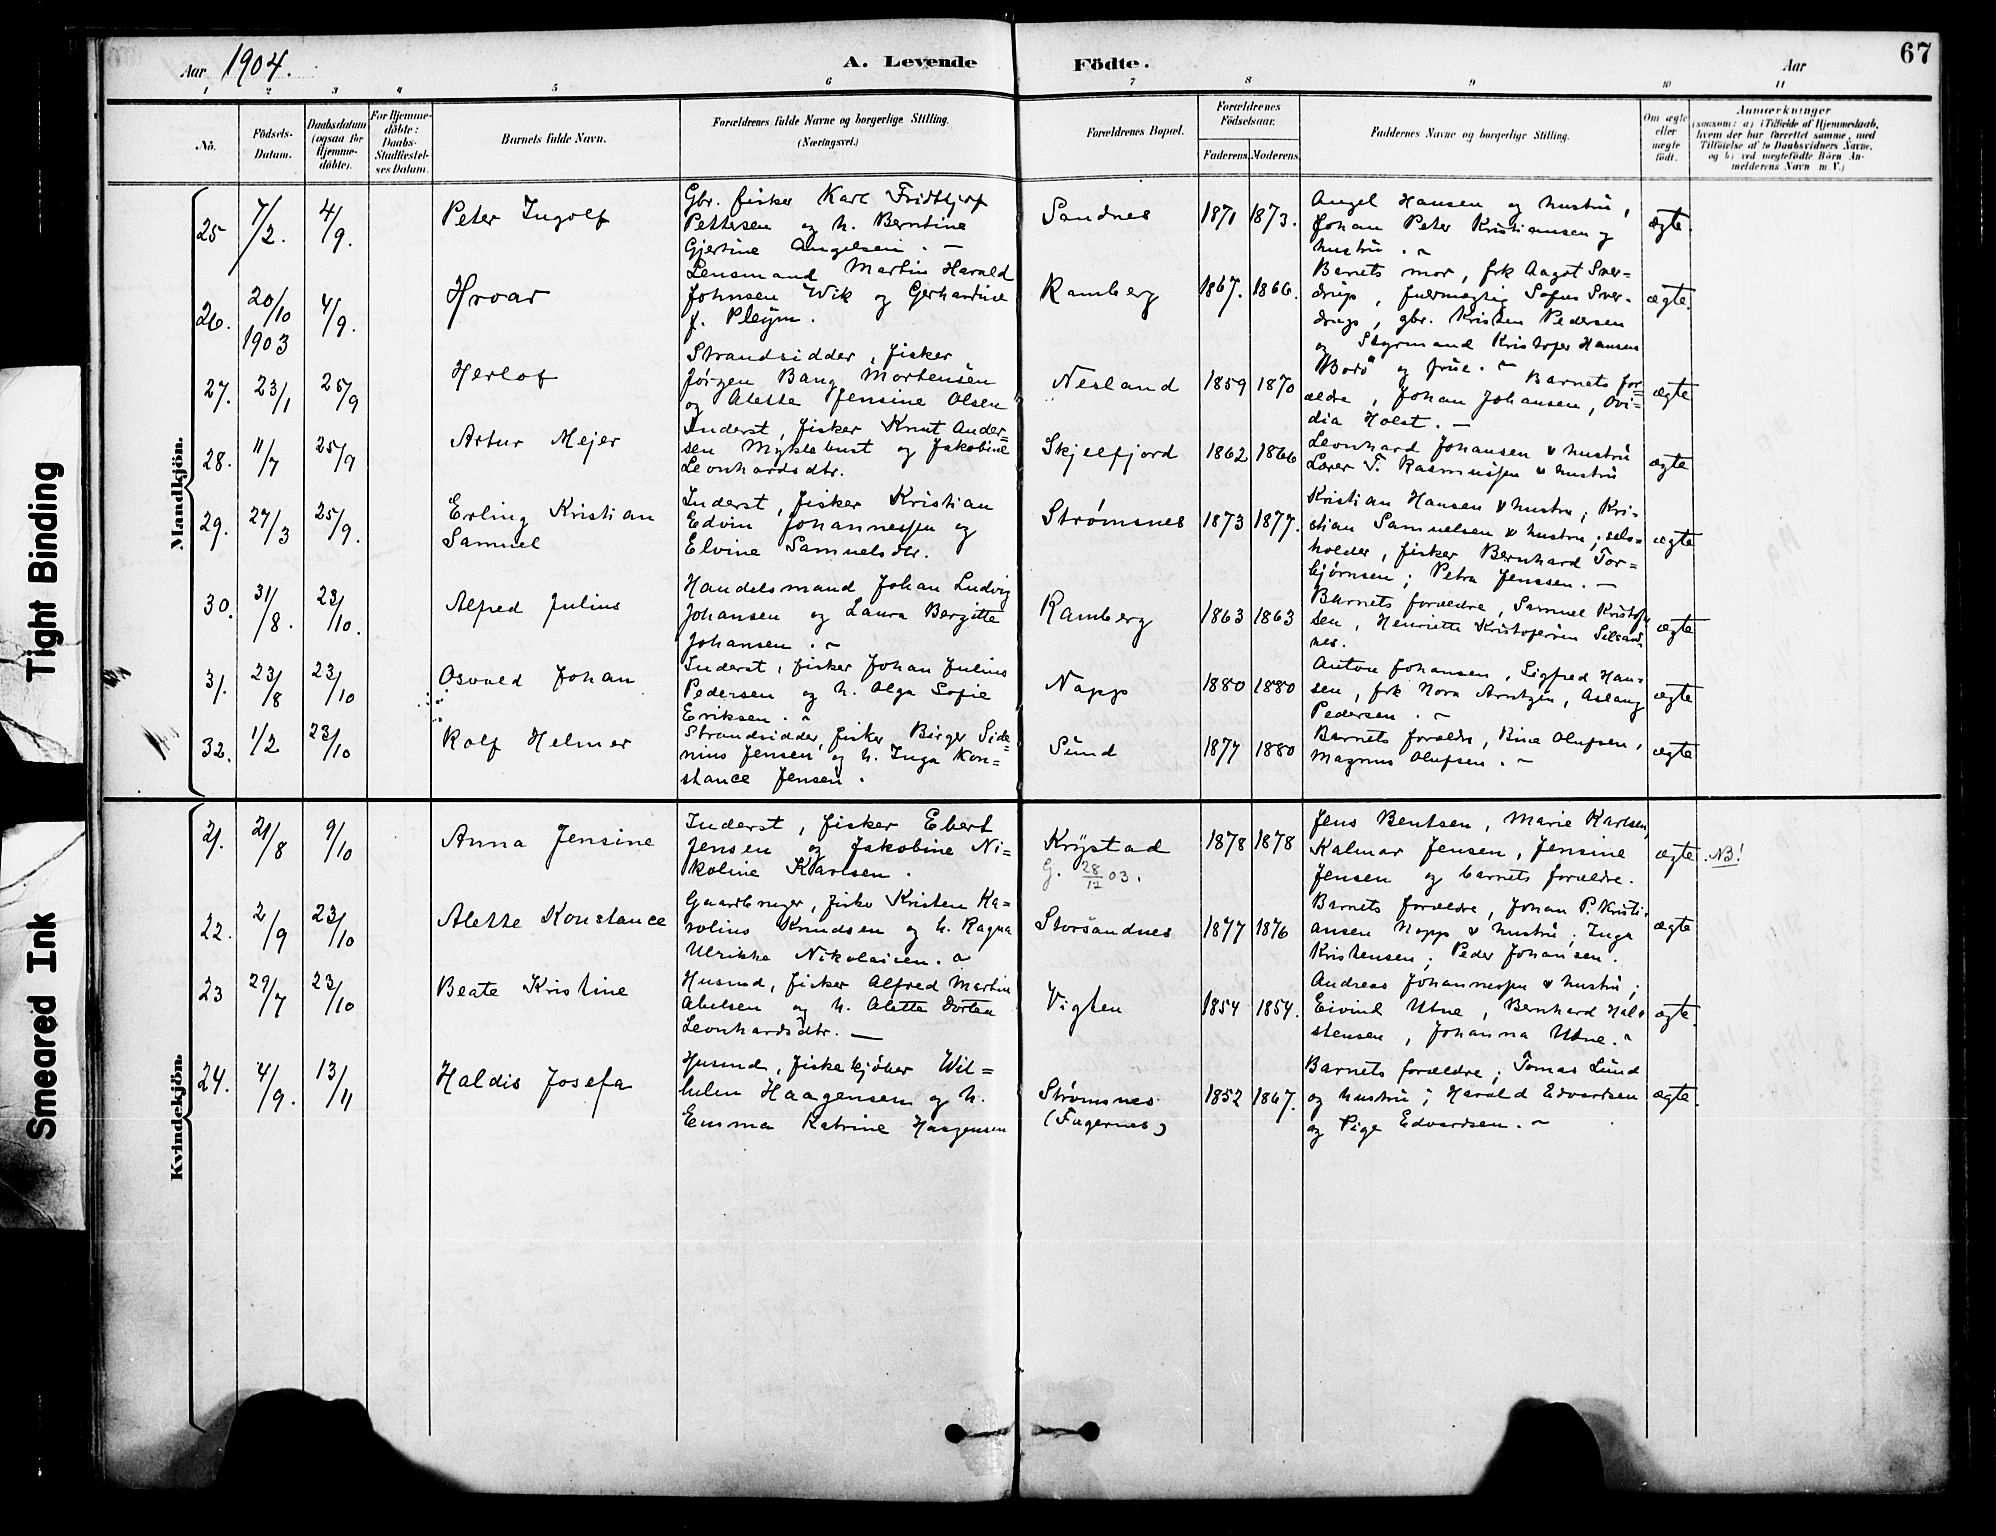 67
Aar 1904.
A. Levende Födte.
Aar
1 2 3 4 5 6 7 8 9 10 11
No.
Födsels-
Datum.
Daabsdatum
(ogsaa for
Hjemme-
döbte).
For Hjemme-
döbte:
Daabs-
Stadfæstel-
ses Datum.
Barnets fulde Navn.
Forældrenes fulde Navne og borgerlige Stilling.
(Næringsvei.)
Forældrenes Bopæl.
Forældrenes
Födselsaar.
Faderens.
Moderens.
Faddernes Navne og borgerlige Stilling.
Om ægte
eller
uægte
födt.
Anmærkninger
(saasom: a) i Tilfælde af Hjemmedaab,
hvem der har forrettet samme, med
Tilföielse af to Daabsvidners Navne,
og b) ved uægtefödte Börn An-
melderens Navn m. V.)
Mandkjön.
25 7/2. 4/9.
Peter Ingolf
Gbr. fisker Karl Fridtjof
Pettersen og h. Berntine
Gjertine Angelsen. –
Sandnes
1871 1873.
Angel Hansen og hustru,
Johan Peter Kristiansen og
hustru. ~
ægte.
26. 20/10 1903 4/9.
Hroar
Lensmand Martin Harald
Johnsen Wik og Gerhardine
f. Pleym.
Ramberg
1867. 1866.
Barnets mor, frk Aagot Sver-
drup, fuldmægtig Sofus Sver-
drup, gbr. Kristen Pedersen
og Styrmand Kristofer Hansen
"Bodö" og frue. ~
ægte.
27. 23/1 25/9
Herlof
Strandsidder, fisker
Jørgen Bang Mortensen
og Alette Jensine Olsen
Nesland
1859 1870
Barnets for-
ældre, Johan Johansen, Ovi-
dia Holst. –
ægte
28. 11/7 25/9
Artur Mejer
Inderst, fisker Knut Ander-
sen Myklebust og Jakobine
Leonhardsdtr.
Skjelfjord
1862 1866
Leonhard Johansen & hustru
Lærer T. Rasmussen & hustru
ægte
29. 27/3 25/9.
Erling Kristian
Samuel
Inderst, fisker Kristian
Edvin Johannessen og
Elvine Samuelsdtr.
Strømsnes
1873 1877.
Kristian Hansen & hustru; Kri-
stian Samuelsen & hustru; selv-
holder, fisker Bernhard Tor-
bjørnsen; Petra Jenssen. –
ægte
30. 31/8. 23/10.
Alfred Julius
Handelsmand Johan Ludvig
Johansen og Laura Bergitte
Johansen. ~
Ramberg
1863 1863
Barnets forældre, Samuel Kristof-
sen, Henriette
nes.
ægte
31. 23/8 23/10
Osvald Johan
Inderst, fisker Johan Julius
Pedersen og h. Olga Sofie
Eriksen. ~
Napp
1880 1880
Anton Johansen, Sigfred Han-
sen, frk Nora Arntzen, Aslaug
Pedersen. ~
ægte
32. 1/2 23/10
Rolf Helmer
Strandsidder, fisker Birger Side-
nius Jensen og h. Inga Kon-
stance Jensen.
Sund
1877 1880
Barnets forældre, Bine Olufsen,
Magnus Olufsen. ~
ægte
Kvindekjön.
21. 21/8 9/10
Anna Jensine
Inderst, fisker Ebert
Jensen og Jakobine Ni-
koline Karlsen.
Krystad
G. 28/12 03.
1878 1878
Jens Bentsen, Marie Karlsen,
Kalmar Jensen, Jensine
Jensen og barnets forældre.
ægte. NB!
22. 2/9 23/10
Alette Konstance
Gaardbruger, fisker Kristen Ka-
rolius Knudsen og h. Ragna
Ulrikke Nikolaisen. ~
Storsandnes
1877 1876
Barnets forældre, Johan P. Kristi-
ansen Napp & hustru; Inga
Kristensen; Peder Johansen.
ægte
23 29/7 23/10
Beate Kristine
Husmd, fisker Alfred Martin
Abelsen og h. Alette Dortea
Leonhardsdtr. –
Vigten
1854 1854.
Andreas Johannessen & hustru;
Eivind Utne, Bernhard Hal-
stensen, Johanna Utne. ~
ægte.
24. 4/9. 13/11
Haldis Josefa
Husmd, fiskekjøber Wil-
helm Haagensen og h.
Emma Katrine Haagensen
Strømsnes
(Fagernes)
1852 1867.
Barnets forældre; Tomas Lund
og hustru; Harald Edvardsen
og Pige Edvardsen. ~
ægte.
Tight Binding
Smeared Ink